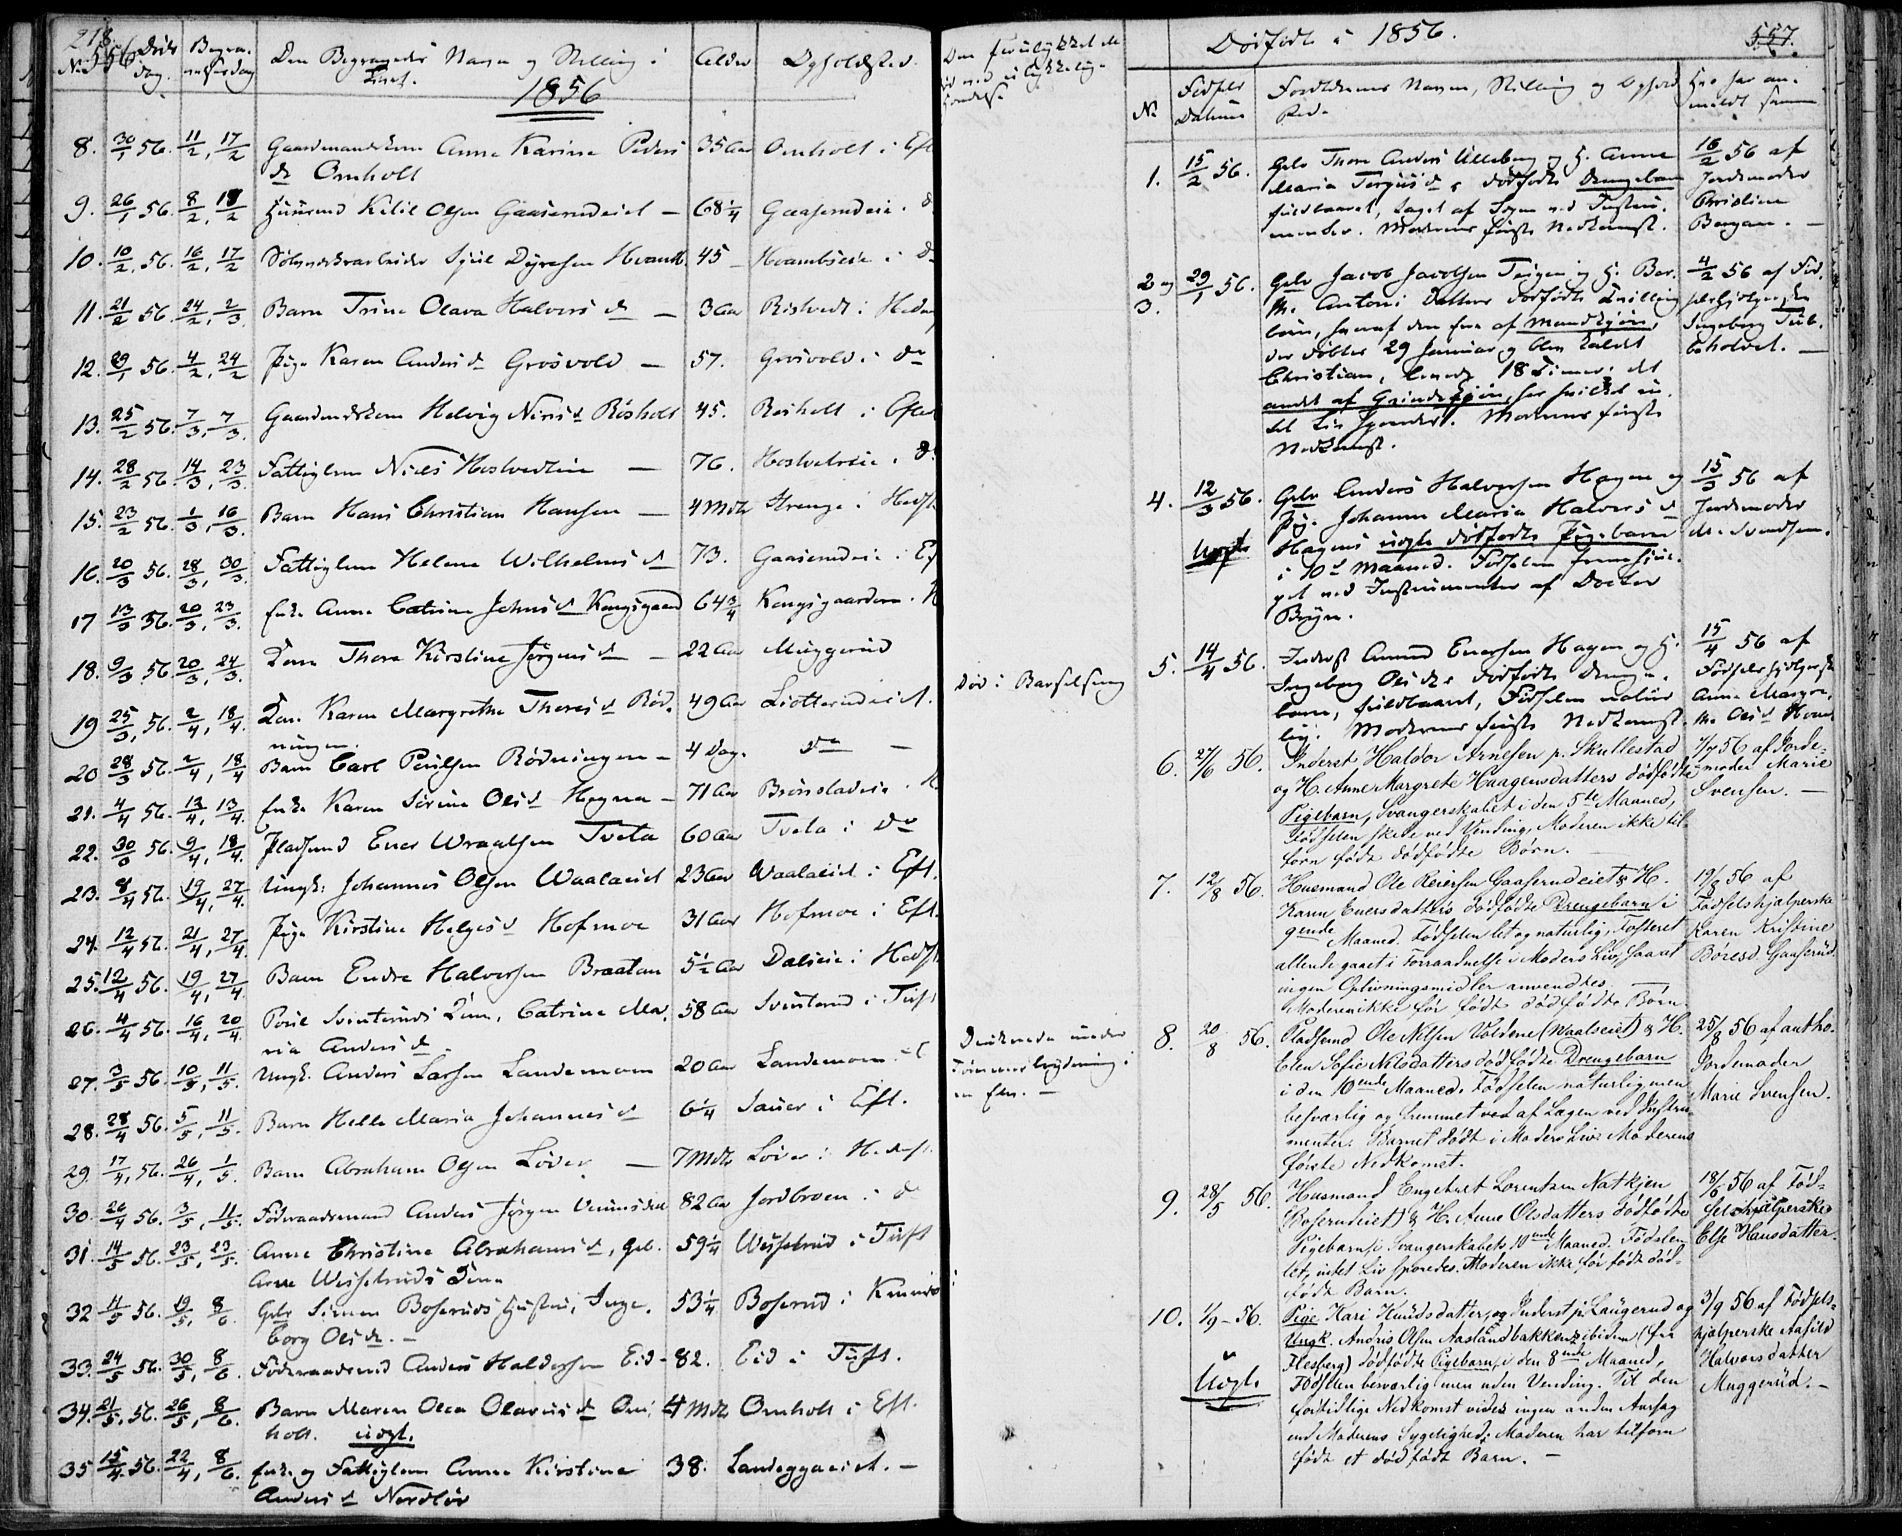 218.
556
No Døds dag. Begra-
Den Begravedes Navn og Stilling i Livet.
Alder
Opholdssted.
1856
8. 30/1 56. 11/2, 17/2 Gaardmandskone Anne Karine Peders 35 Aar Omholt i Eft
d Omholt
9. 26/1 56. 8/2, 18/2 Huusmd Kitil Olsen Gaaserudeiet — 68 1/4 Gaaserudeie
10. 10/2 56. 16/2, 17/2 45 Hvambseie i
11. 21/2 56. 24/2, 2/3. Barn Trine Olava Halvors d — 3 Aar Ristvedt i
12. 29/1 56. 4/2, 24/2 Pige Karen Anders d Grosvold — 57. Grosvold i do
13. 25/2 56. 7/3, 7/3. Gaardmdskone Helvig Niris d Røsholt 45. Røsholt i Efte
14. 28/2 56. 14/3, 23/3. Fattiglem Niels Hostvedteie — 76. Hostvedteie
15. 23/2 56. 1/3, 16/3. Barn Hans Christian Hansen — 4 Mdr Strenge i Hedst
16. 20/3 56. 28/3, 30/3. Fattiglem Helene Wilhelms d 73. Gaaserudeie i Ef
17 13/3 56. 20/3, 23/3. Enke Anne Catrine Johns d Kongsgaard 64 3/4 Kongsgaarden
18. 9/3 56. 20/3, 24/3. Kone Thore Kirstine Jørgens d — 22 Aar Muggerud
19 25/3 56. 2/4, 18/4. Kone Karen Margrethe Thores d Rød- 49 Aar
ningen.
20 28/3 56. 2/4, 18/4 Barn Carl Poulsen Rødningen — 4 Dag. do —
21. 4/4 56. 13/4, 13/4. Enke Karen Sørine Ols d 71 Aar
22. 30/3 56. 9/4, 18/4. Pladsmd Ener Wraalsen Tveta 60 Aar Tveta i do
23. 8/4 56. 19/4, 27/4. Ungk: Johannes Olsen Waalaeiet 23 Aar Waalaeiet i Eft.
24. 12/4 56. 21/4, 27/4. Pige Kirstine Helges d Hofmoe 31 Aar Hofmoe i Eft.
25. 12/4 56. 19/4, 27/4. Barn Endre Halvorsen Braaten 5 1/2 Aar Dalseie i Hedst
26. 4/4 56. 16/4, 20/4. Poul Svinteruds Kone, Catrine Ma- 58 Aar Svinterud i Tuft
ria Anders d.
27. 3/5 56. 10/5, 11/5. Ungk. Anders Larsen Landemoen 20 Aar Landemoen
28. 28/4 56. 5/5, 11/5. Barn Helle Maria Johannes d 6 1/4 Sauer i Eft.
29. 17/4, 56. 26/4, 1/5. Barn Abraham Olsen Løver — 7 Mdr Løver i Hedst.
30. 26/4 56. 3/5, 11/5. Føderaadsmand Anders Jørgen 82 Aar Jordbroen i d
31. 14/5 56. 23/5, 23/5. Anne Christine Abrahams d, Gab. 59 1/4 Wisselrud i Tuft
Arne Wisselruds Kone
32 11/5 56. 19/5, 8/6. Gdr Simen Boseruds Hustru, Inge- 53 1/4 Boserud i
borg Ols d. —
33. 24/5 56. 30/5, 8/6. Føderaadsmd Anders Haldorsen Eid — 82. Eid i Tuft.
34. 21/5, 56. 26/5, 8/6. Barn Maren Olea Olavus d Om- 4 Mdr Omholt i Eft.
holt. uægt.
35 15/4 56. 22/4, 8/6. Enke og Fattiglem Anne Kirstine 38. Landeggaeiet. —
Anders d Nordløv
Om forulykket el
død ved ulykkelig
Hændelse
Død i Barselseng
Druknede under
Tømmerflødning i
en Elv. —
Dødfødte i 1856.
557.
No Fødsels Datum Forældrenes Navn, Stilling og Opholds Sted. Hvo har an-
meldt samme
1. 15/2 56. Gdr Thore Anders Ulleberg og H. Anne
Maria Torgius d s dødfødte Drengebarn
fuldbaaret, taget af Lægen ved Instru-
menter. Moderens første Nedkomst.
16/2 56 af
Jordemoder
Christine
Bergan. —
2 og 3. 29/1 56. Gdr Jacob Jacobsen Teigen og H. Ber-
the Antoni Datters dødfødte Tvilling-
børn, hvoraf den ene af Mandkjøn,
der døbtes 29 Januar og blev kaldt
Christian, levede 18 Timer; det
andet af Qvindekjøn, hos hvilket in-
tet Liv sporedes. Moderens første
Nedkomst.
4/2 56 af Fød-
selshjelperske
Ingeborg Tub-
beholvet. —
4. 12/3 56. Gdr Anders Halvorsen Hagen og
Pig. Johanne Maria Halvors d
Uægte Hagens uægte dødfødte Pigebarn
i 10d Maaned. Fødselen fremhjul-
pet ved Instrumenter af Doctor
Bryn.
15/3 56 af
Jordemoder
M. Svendsen.
5. 14/4 56. Inderst Amund Enersen Hagen og H.
Ingeborg Ols d s dødfødte Drenge-
barn, fuldbaaret, Fødselen natur-
lig. Moderens første Nedkomst.
15/4 56 af
Fødselshjelperske
Anne Margre-
the Ols d
6. 27/6 56. Inderst Haldor Arnesen p. Skullestad
og H. Anne Margrete Haagensdatters dødfødte
Pigebarn, Svangerskabet i den 5te Maaned,
Fødselen skete ved Vending, Moderen ikke til-
forn født dødfødte Børn.
7/7 56 af Jorde-
moder Marie
Svensen. —
7. 12/8 56. Husmand Ole Reiersen Gaaserudeiet & H.
Karen Enersdatters dødfødte Drengebarn i
9ende Maaned. Fødselen let og naturlig, Fosteret
allerede gaaet i Forraadnelse i Moders Liv, saaat
ingen Oplivningsmidler anvendtes,
Moderen ikke før født dødfødte Børn.
19/8 56 af
Fødselshjælperske
Karen Kristine
Børesd. Gaaserud.
8. 20/8 56. Pladsmd Ole Nilsen Valdene (Waalseiet) & H.
Elen Sofie Nilsdatters dødfødte Drengebarn
i den 10ende Maaned. Fødselen naturlig men
besværlig og fremmet ved af Lægen ved Instru-
menter. Barnet dødt i Moders Liv. Moderens
første Nedkomst.
25/8 56 af autho.
Jordemoder
Marie Svensen.
9. 28/5 56. Husmand Engebret Lorentsen Natkjen
(Boserudeiet) & H. Anne Olsdatters dødfødte
Pigebarn i Svangerskabets 10ende Maaned. Fødslen
let, intet Liv sporedes. Moderen ikke før født død-
født Barn.
18/6 56 af Fød-
selshjælperske
Else Hansdatter.
10. 1/9 — 56. Pige Kari Knudsdatter, og Inderst på Laugerud og
Ungk. Andris Olsen Aaslandbakkens ibidem (fra
Uægte Flesberg) dødfødte Pigebarn i den 8ende Maaned,
Fødslen besværlig men uden Vending. Til den
fortidlige Nedkomst vides ingen anden Aarsag
end Moderens Sygelighed; Moderen har tilforn
født et dødfødt Barn. —
3/9 56 af Fødsels-
hjælperske Aasild
Halvorsdatter
Muggerud. —